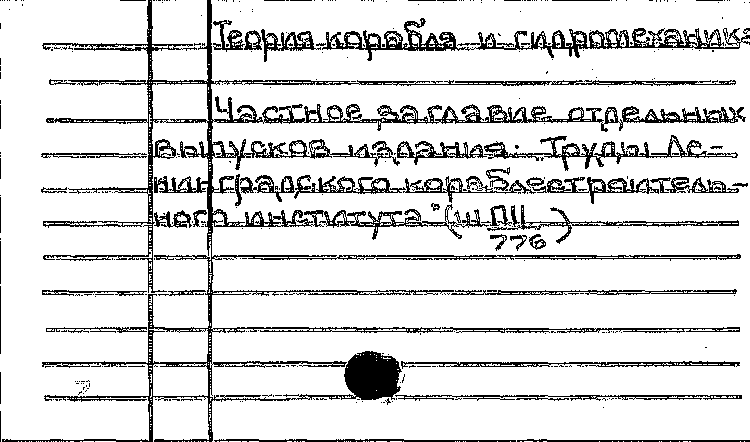 Теория корабля и гидромеханика
Частное заглавие отдельных
выпусков издания: "Труды Ле-
нинградского кораблестроитель-
ного института" (ш ПII
776)
7